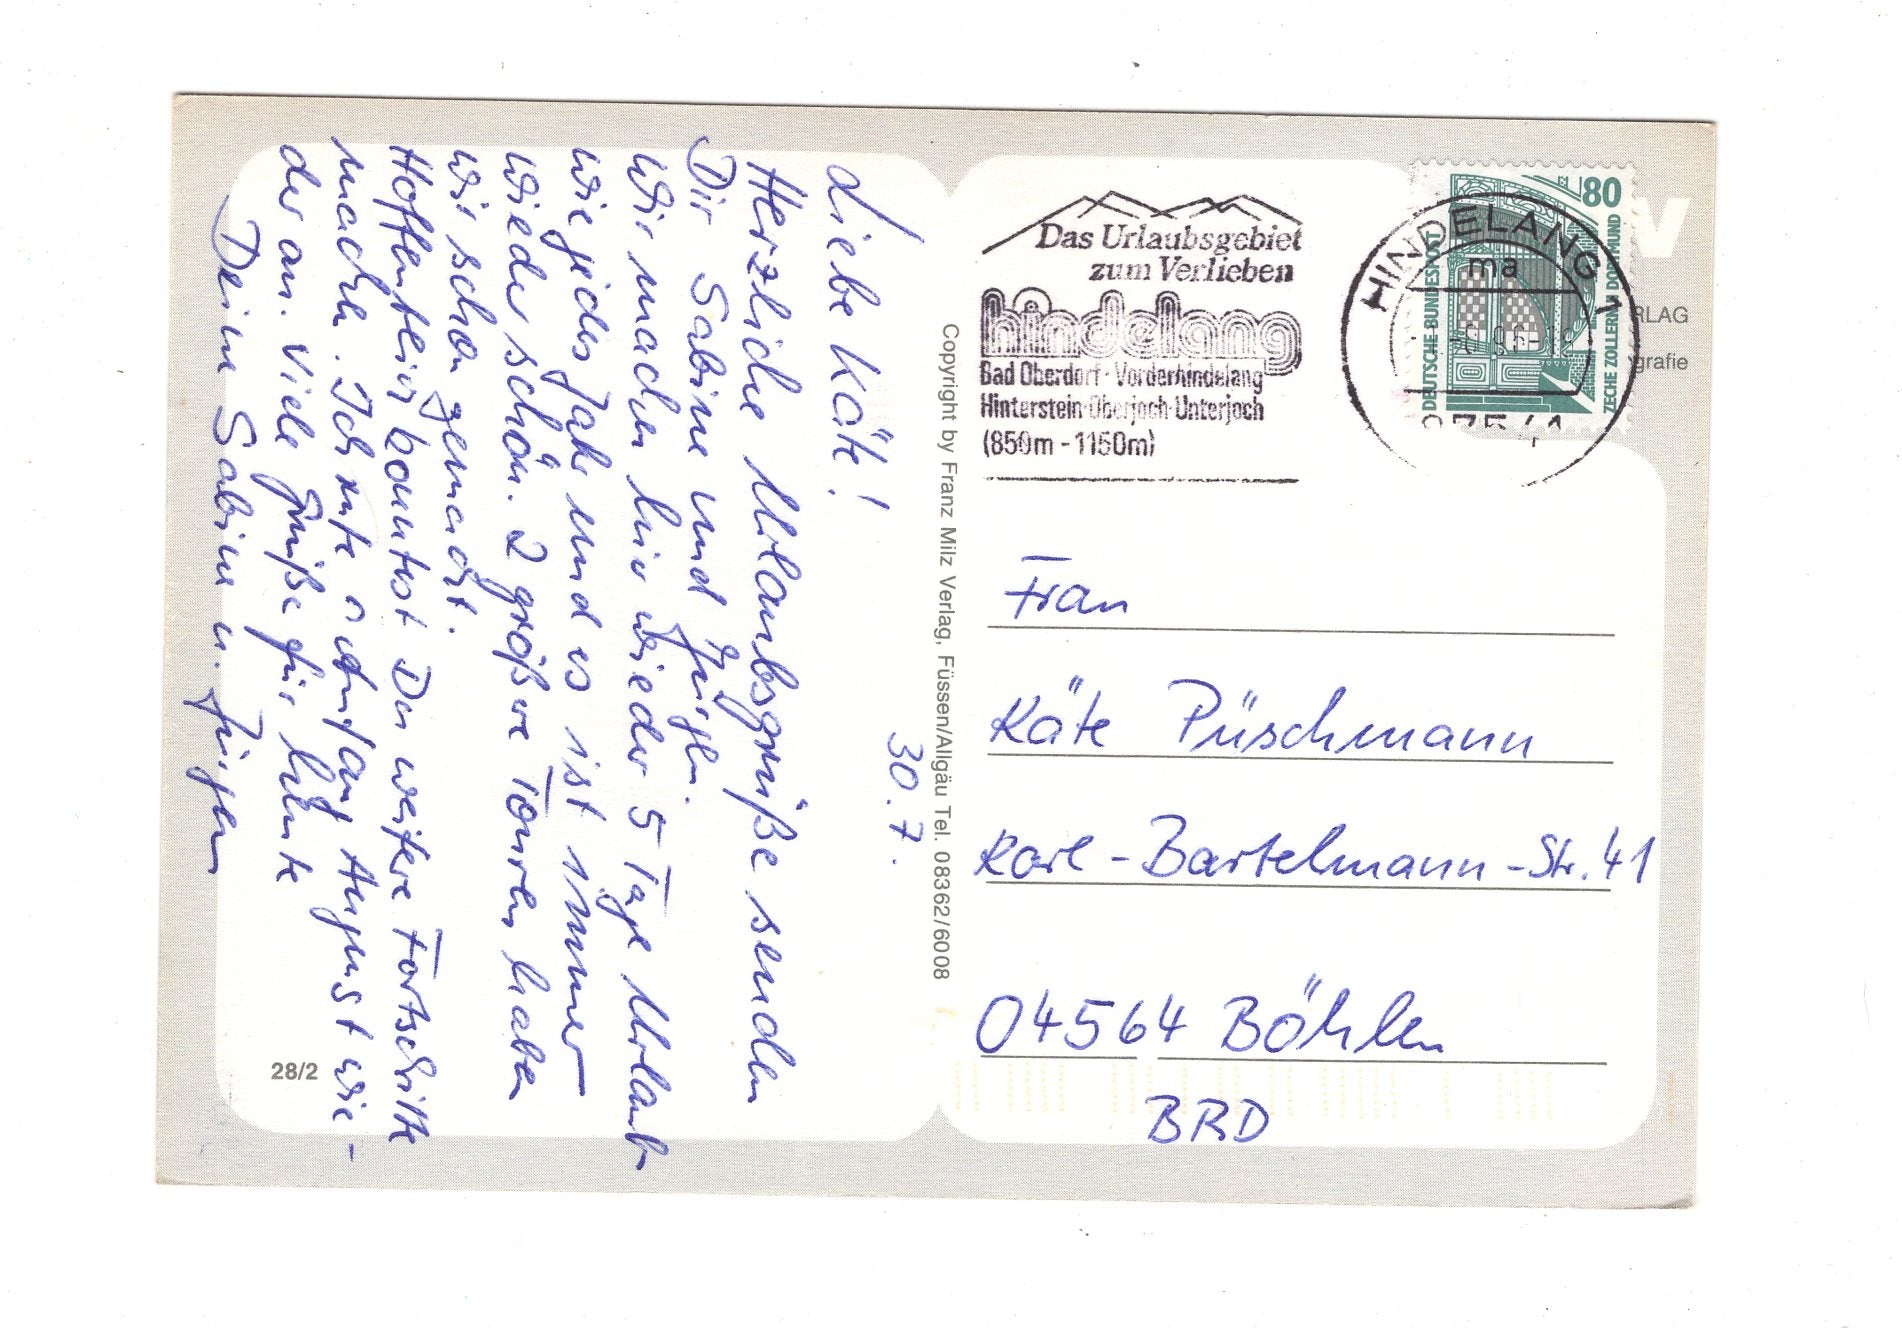 30.7.
Liebe Käte!
Herzliche Urlaubsgrüße senden
Dir Sabine und Jürgen.
Wir machen hier wieder 5 Tage Urlaub
wie jedes Jahr und es ist immer
wieder schön. 2 größere Touren haben
wir schon gemacht.
Hoffentlich konntest Du weitere Fortschritte
machen. Ich rufe Anfang August wie-
der an. Viele Grüße für heute
Deine Sabine u. Jürgen
28/2
Copyright by Franz Milz Verlag, Füssen/Allgäu Tel. 08362/6008
Das Urlaubsgebiet
zum Verlieben
hindelang
Bad Oberdorf · Vorderhindelang
Hinterstein·Oberjoch·Unterjoch
(850m - 1150m)
HINDELANG 1
ma
87541
80
DEUTSCHE BUNDESPOST
ZECHE ZOLLERN DORTMUND
RLAG
grafie
Frau
Käte Püschmann
Karl-Bartelmann-Str. 41
04564 Böhlen
BRD